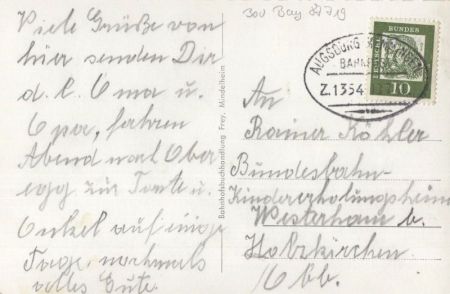 300 Bay 87719
Viele Grüße von
hier senden Dir
d. l. Oma u.
Opa, fahren
Abend nach Ober
egg zur Tante u.
Onkel auf einige
Tage, nochmals
alles Gute.
Bahnhofsbuchhandlung Frey, Mindelheim
AUGSBURG
BAHNPOST
Z.1354
BUNDES
10
An
Rainer Köhler
Bundesbahn-
Kindererholungsheim
Westerham b.
Holzkirchen
/Obb.